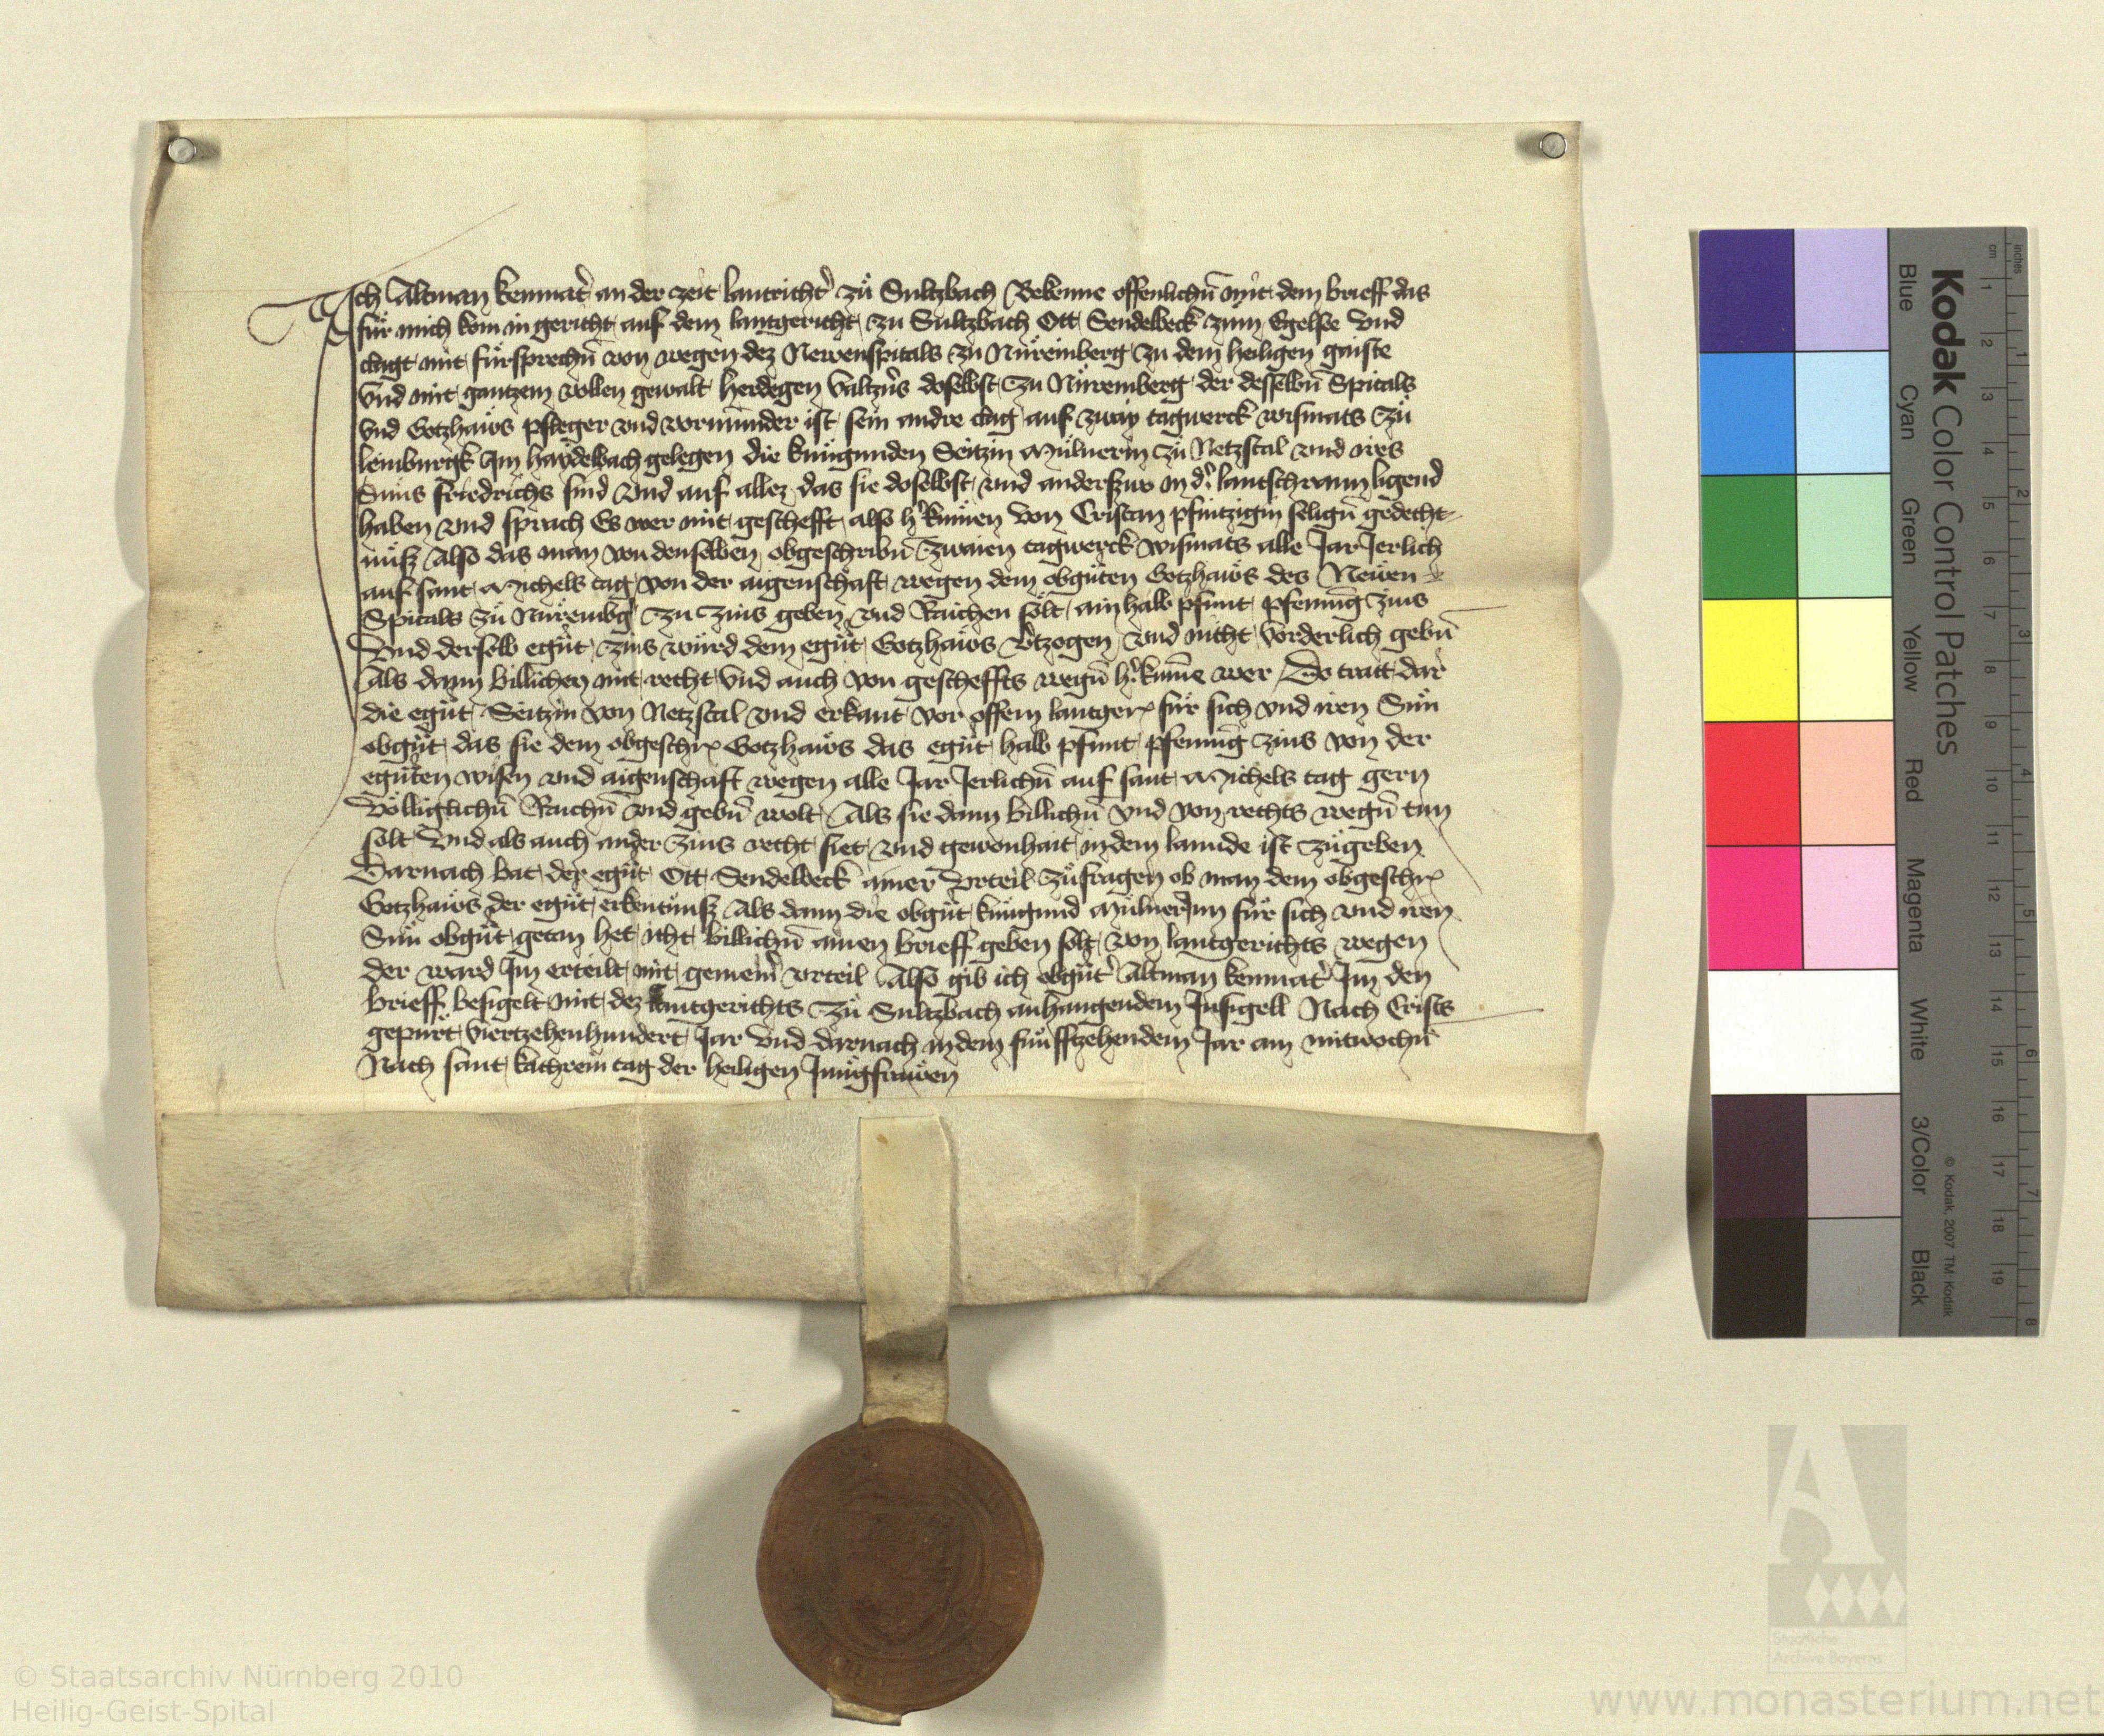 Ich Altman kemnat̾ an der zeit lantricht̾ zů Sultzbach Bekenne offenlichn̄ mit dem brieff das
für mich kom in gericht auf dem lantgericht zu Sultzbach Ott Sendelbeck zum Egelsee vnd
clagt mit fürsprechn̄ von wegen dez Newenspitals zu Nüremberg zu dem heiligen gaiste
vnd mit gantzem vollen gewalt herdegen valtzn̾s doselbst zu Nüremberg der desselbn̄ Spitals
vnd Gotzhaws pfleger vnd vormunder ist sein andre clag auf zway tagwerck wismats zů
lemburgk Im haydelbach gelegen die kungunden Seitzin Mülnerin zu Netzstal vnd ires
Suns Friedrichs sind vnd auf allez das sie doselbst vnd anderszwo in d̾ lantschrann ligend
haben vnd sprach Es wer mit geschefft also h̾kumen von Cristan pfintzigin selign̄ gedecht-
nüß Also das man von denselben obgeschribn̄ zwaien tagwerck wismats alle Jar Jerlich
auf sant Michels tag von der aigenschaft wegen dem obgůten Gotzhaws des Newen
Spitals zů Nürembg̾ zu zins geben vnd Raichen solt ain halb pfunt pfenning zins
Vnd derselb egůt zins würd dem egůt Gotzhaws v̾tzogen vnd nicht vorderlich gebn̄
Als dann billichen mit recht vnd auch von gescheffts wegn̄ h̾kumē wer Do tratt dar
die egůt Seitzin von Netzstal vnd erkant vor offem lantger für sich vnd iren Sun
obgůt das sie dem obgeschr Gotzhaws das egůt halb pfunt pfenning zins von der
egůten wisen vnd aigenschaft wegen alle Jar Jerlichn̄ auf sant Michels tag gern
völliglichn̄ Raichn̄ vnd gebn̄ wolt Als sie dann billichn̄ vnd von rechts wegn̄ tun
solt Vnd als auch ander zins recht siet vnd gewonhait in dem lannde ist zůgeben
Darnach bat der egůt Ott Sendelbeck ainer Vrteil zůfragen ob man dem obgeschr
Gotzhaws der egůt erkentnüß Als dann die obgůt kungund Mülnerinn für sich vnd iren
Sun obgůt getan het icht billichn̄ ainen brieff geben solt von lantgerichts wegen
der ward Im erteilt mit gemein̾ vrteil Also gib ich obgůt̾ Altman kemnat̾ Im den
brieff besigelt mit dez lantgerichts zů Sultzbach anhangendem Insigell Nach Crists
gepurt viertzehenhundert Jar vnd darnach in dem fünfftzehendem Jar am mitwochn̄
Nach sant kathrein tag der heiligen Jungfrawen
Kodak Color Control Patches
Blue Cyan Green Yellow Red Magenta White 3/Color Black
© Kodak, 2007 TM: Kodak
inches 1 2 3 4 5 6 7 8
cm 1 2 3 4 5 6 7 8 9 10 11 12 13 14 15 16 17 18 19
Staatliche
Archive Bayerns
© Staatsarchiv Nürnberg 2010
Heilig-Geist-Spital
www.monasterium.net